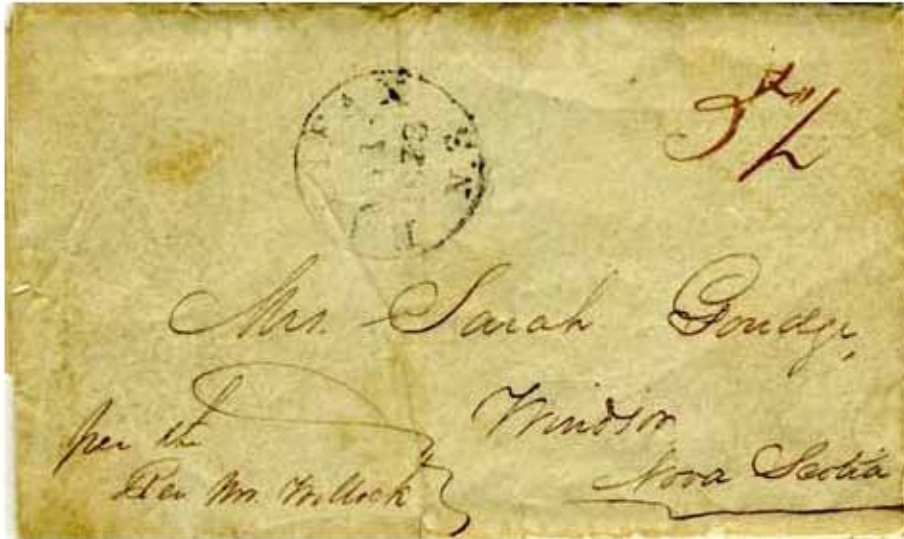 N.S.
Mrs. Sarah Goudge,
Windsor
Nova Scotia
per the
Rev Mr.